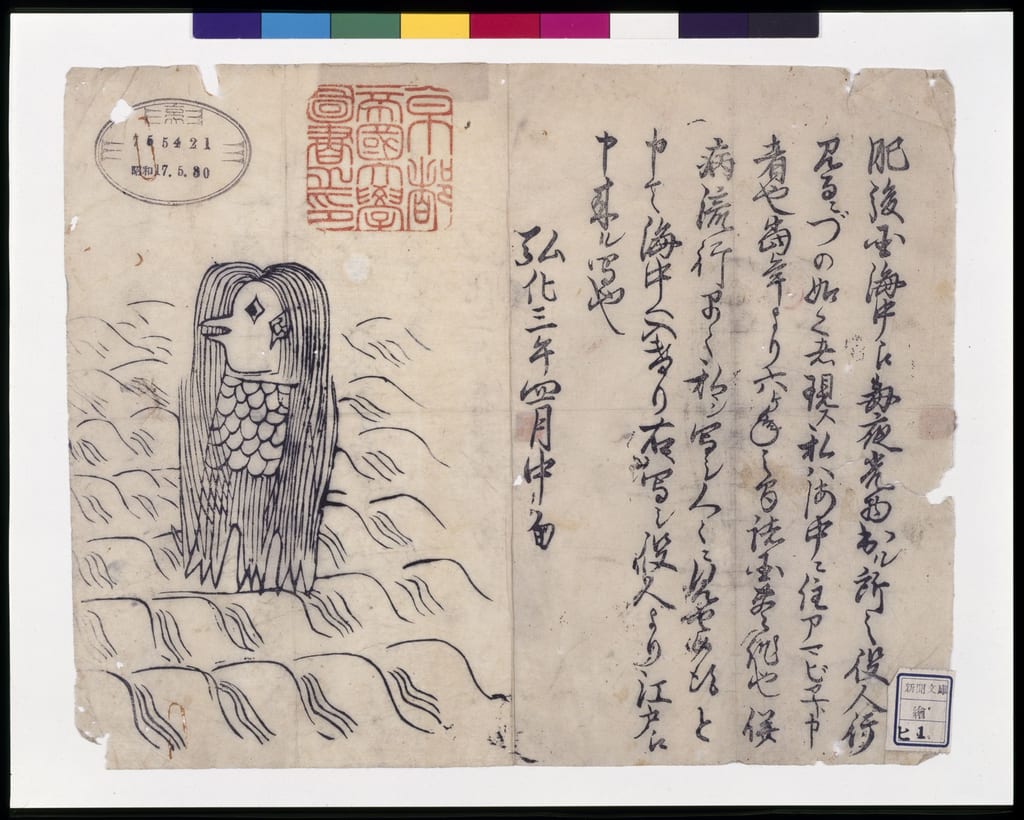 肥後国海中に毎夜光物出ル所之役人行
見るニづの如之者現ス私ハ海中ニ住アマビヱト申
者也當年より六ヶ年之間諸国豊作也併
病流行早々私シ写シ人々ニ見せ候得と
申て海中へ入けり右写シ役人より江戸に
申来ル写也
弘化三年四月中旬
京都
帝國大學
圖書之印
765421
昭和17.5.30
新聞文庫
繪
ヒ1